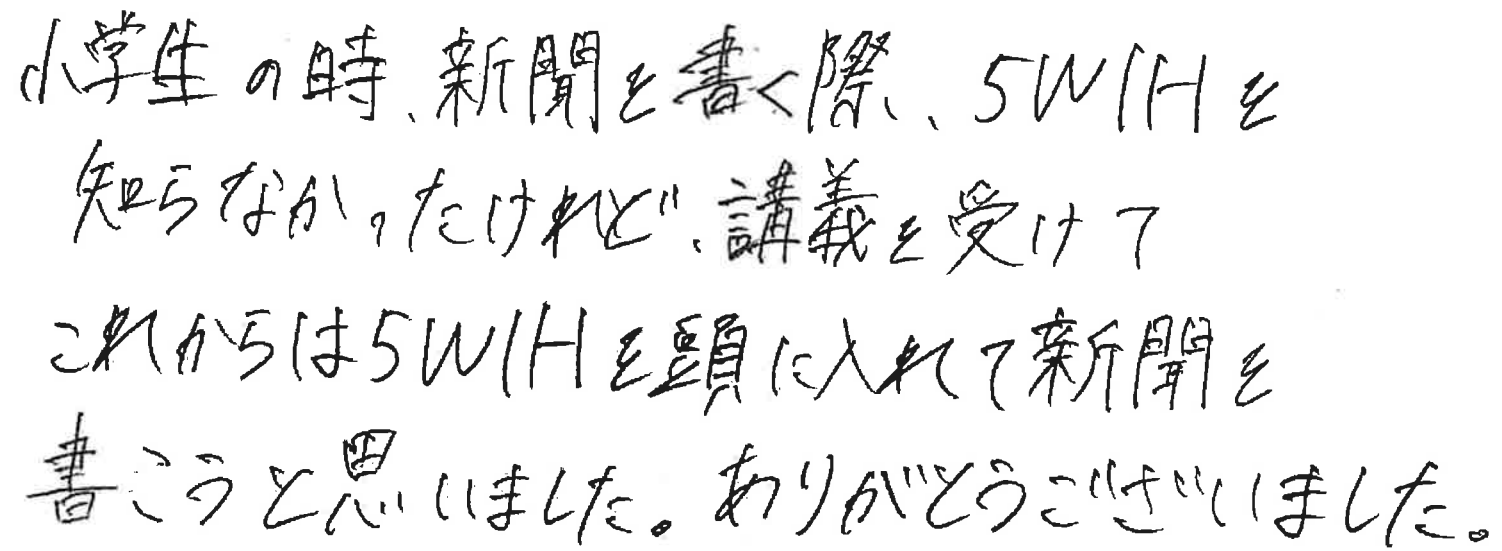 小学生の時、新聞を書く際、、5W1Hを
知らなかったけれど、講義を受けて
これからは5W1Hを頭に入れて新聞を
書こうと思いました。ありがとうございました。